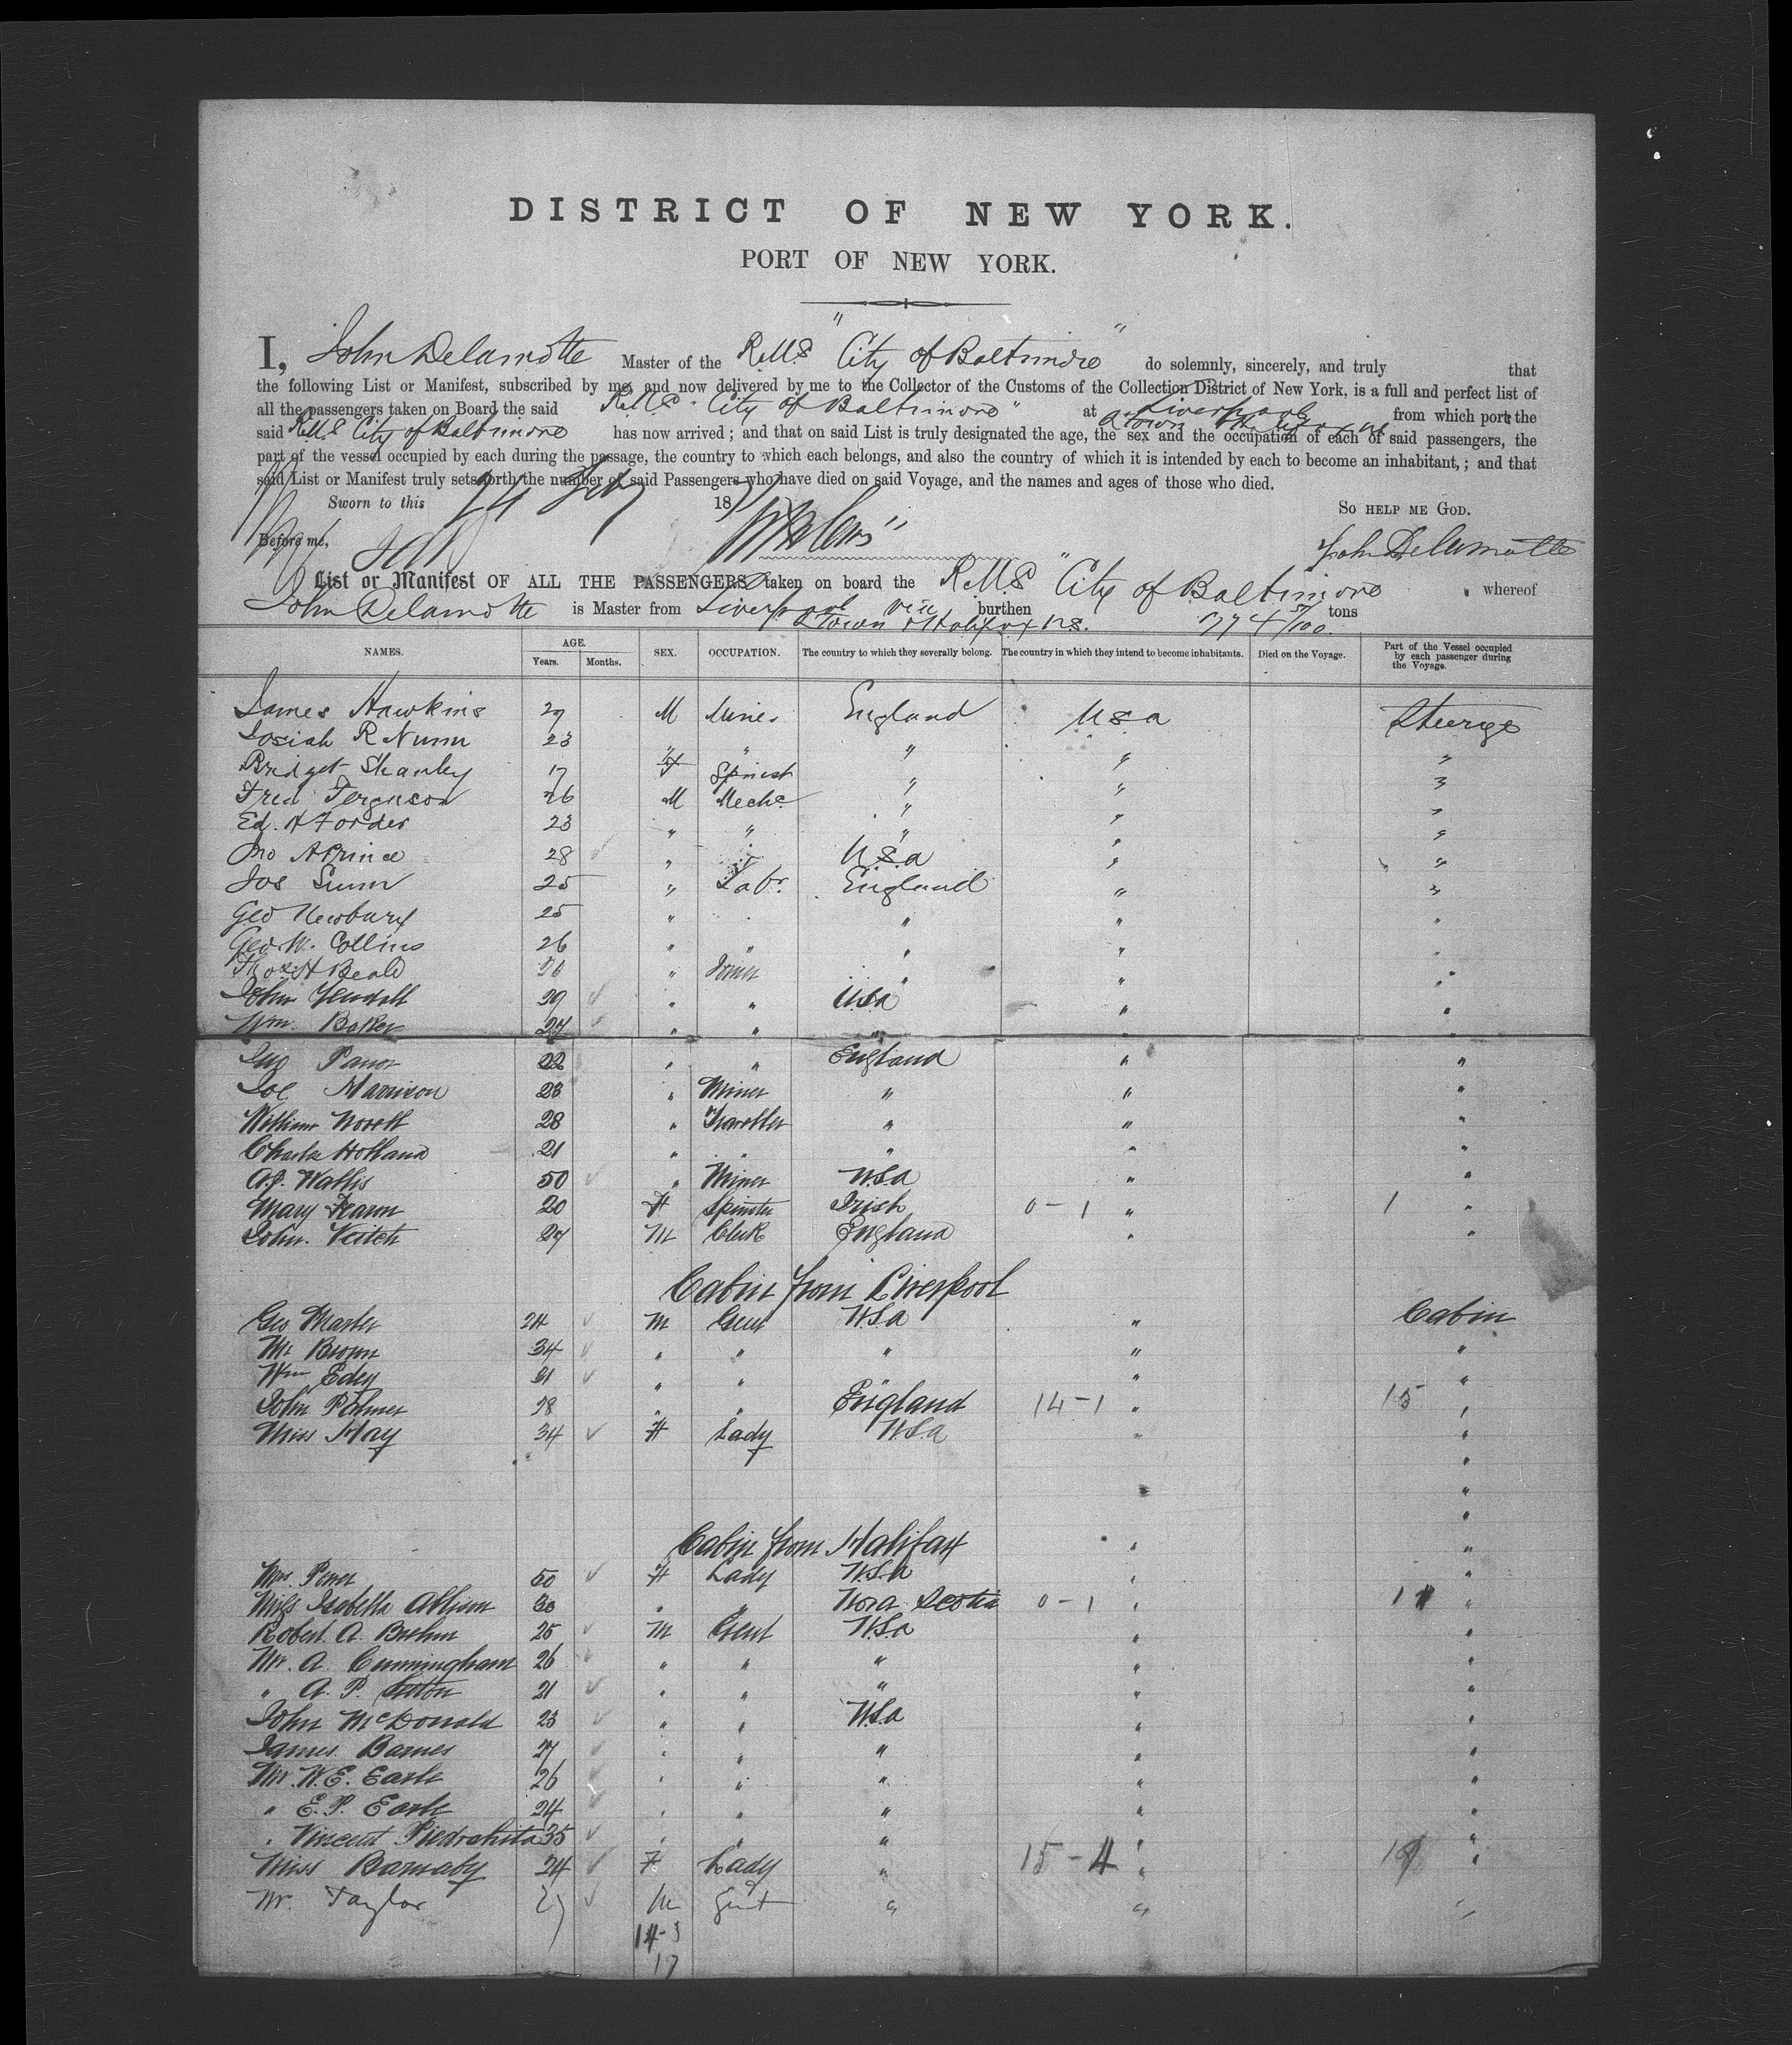 DISTRICT OF NEW YORK.
PORT OF NEW YORK.
I, John Delamotte Master of the RMS "City of Baltimore" do solemnly, sincerely, and truly that
the following List or Manifest, subscribed by me, and now delivered by me to the Collector of the Customs of the Collection District of New York, is a full and perfect list of
all the passengers taken on Board the said RMS "City of Baltimore" at Liverpool from which port the
said RMS City of Baltimore has now arrived; and that on said List is truly designated the age, the sex and the occupation of each of said passengers, the
part of the vessel occupied by each during the passage, the country to which each belongs, and also the country of which it is intended by each to become an inhabitant,; and that
said List or Manifest truly sets forth the number of said Passengers who have died on said Voyage, and the names and ages of those who died.
Sworn to this 24 Feby 18 So HELP ME GOD.
Before me, John Delamotte
List or Manifest OF ALL THE PASSENGERS taken on board the RMS "City of Baltimore whereof
John Delamotte is Master from Liverpool via burthen tons
Qtown & Halifax NS.
NAMES. AGE. SEX. OCCUPATION. The country to which they severally belong. The country in which they intend to become inhabitants. Died on the Voyage. Part of the Vessel occupied by each passenger during the Voyage.
Years. Months.
James Hawkins 29 M Miner England USa Steerage
Josiah R Nunn 23 " " " " "
Bridget Shanley 17 F Spinst " " "
Fred Ferguson 26 M Mechc " " "
Ed. A Forder 23 " " " " "
Jno A Prince 28 " " USa " "
Jos Gunn 25 " Labr. England " "
Geo Newbury 25 " " " "
Geo W. Collins 26 " " " " "
Thos H Beald " " " "
John Yendall 29 " " USa " "
Wm. Baker 27 " " " " "
Jno 22 " " England " "
Joe Harrison 23 " Miner " " "
William Norett 28 " Traveller " " "
Charles Holland 21 " " " " "
A.J. Wallis 50 " Miner USA " "
Mary Fearn 20 F Spinster Irish 0-1 " 1 "
John. Veitch 27 M Clerk England " "
Cabin from Liverpool
Geo Marler 24 M Gent USa " Cabin
Mr Brown 34 " " " " "
Wm Edey 31 " " " "
John Palmer 28 " " England 14-1 " 15 "
Miss Hay 34 F Lady USa " "
Cabin from Halifax
Mrs. Power 50 F Lady USA " "
Miss Isabella Allison 30 " " Nova Scotia 0-1 " 1 "
Robert. A. Brehm 25 M Gent USa " "
Mr. A. Cunningham 26 " " " " "
" A. P. 21 " " " " "
John McDonald 23 " " USa " "
James. Barnes 27 " " " " "
Mr. W. E. Earle 26 " " " " "
" E. P. Earle 24 " " " " "
" Vincent Piedrahita 35 " " " " "
Miss Barnaby 24 F Lady " 15-4 " 19 "
Mr. Taylor 27 M Gent " " "
14-3
17